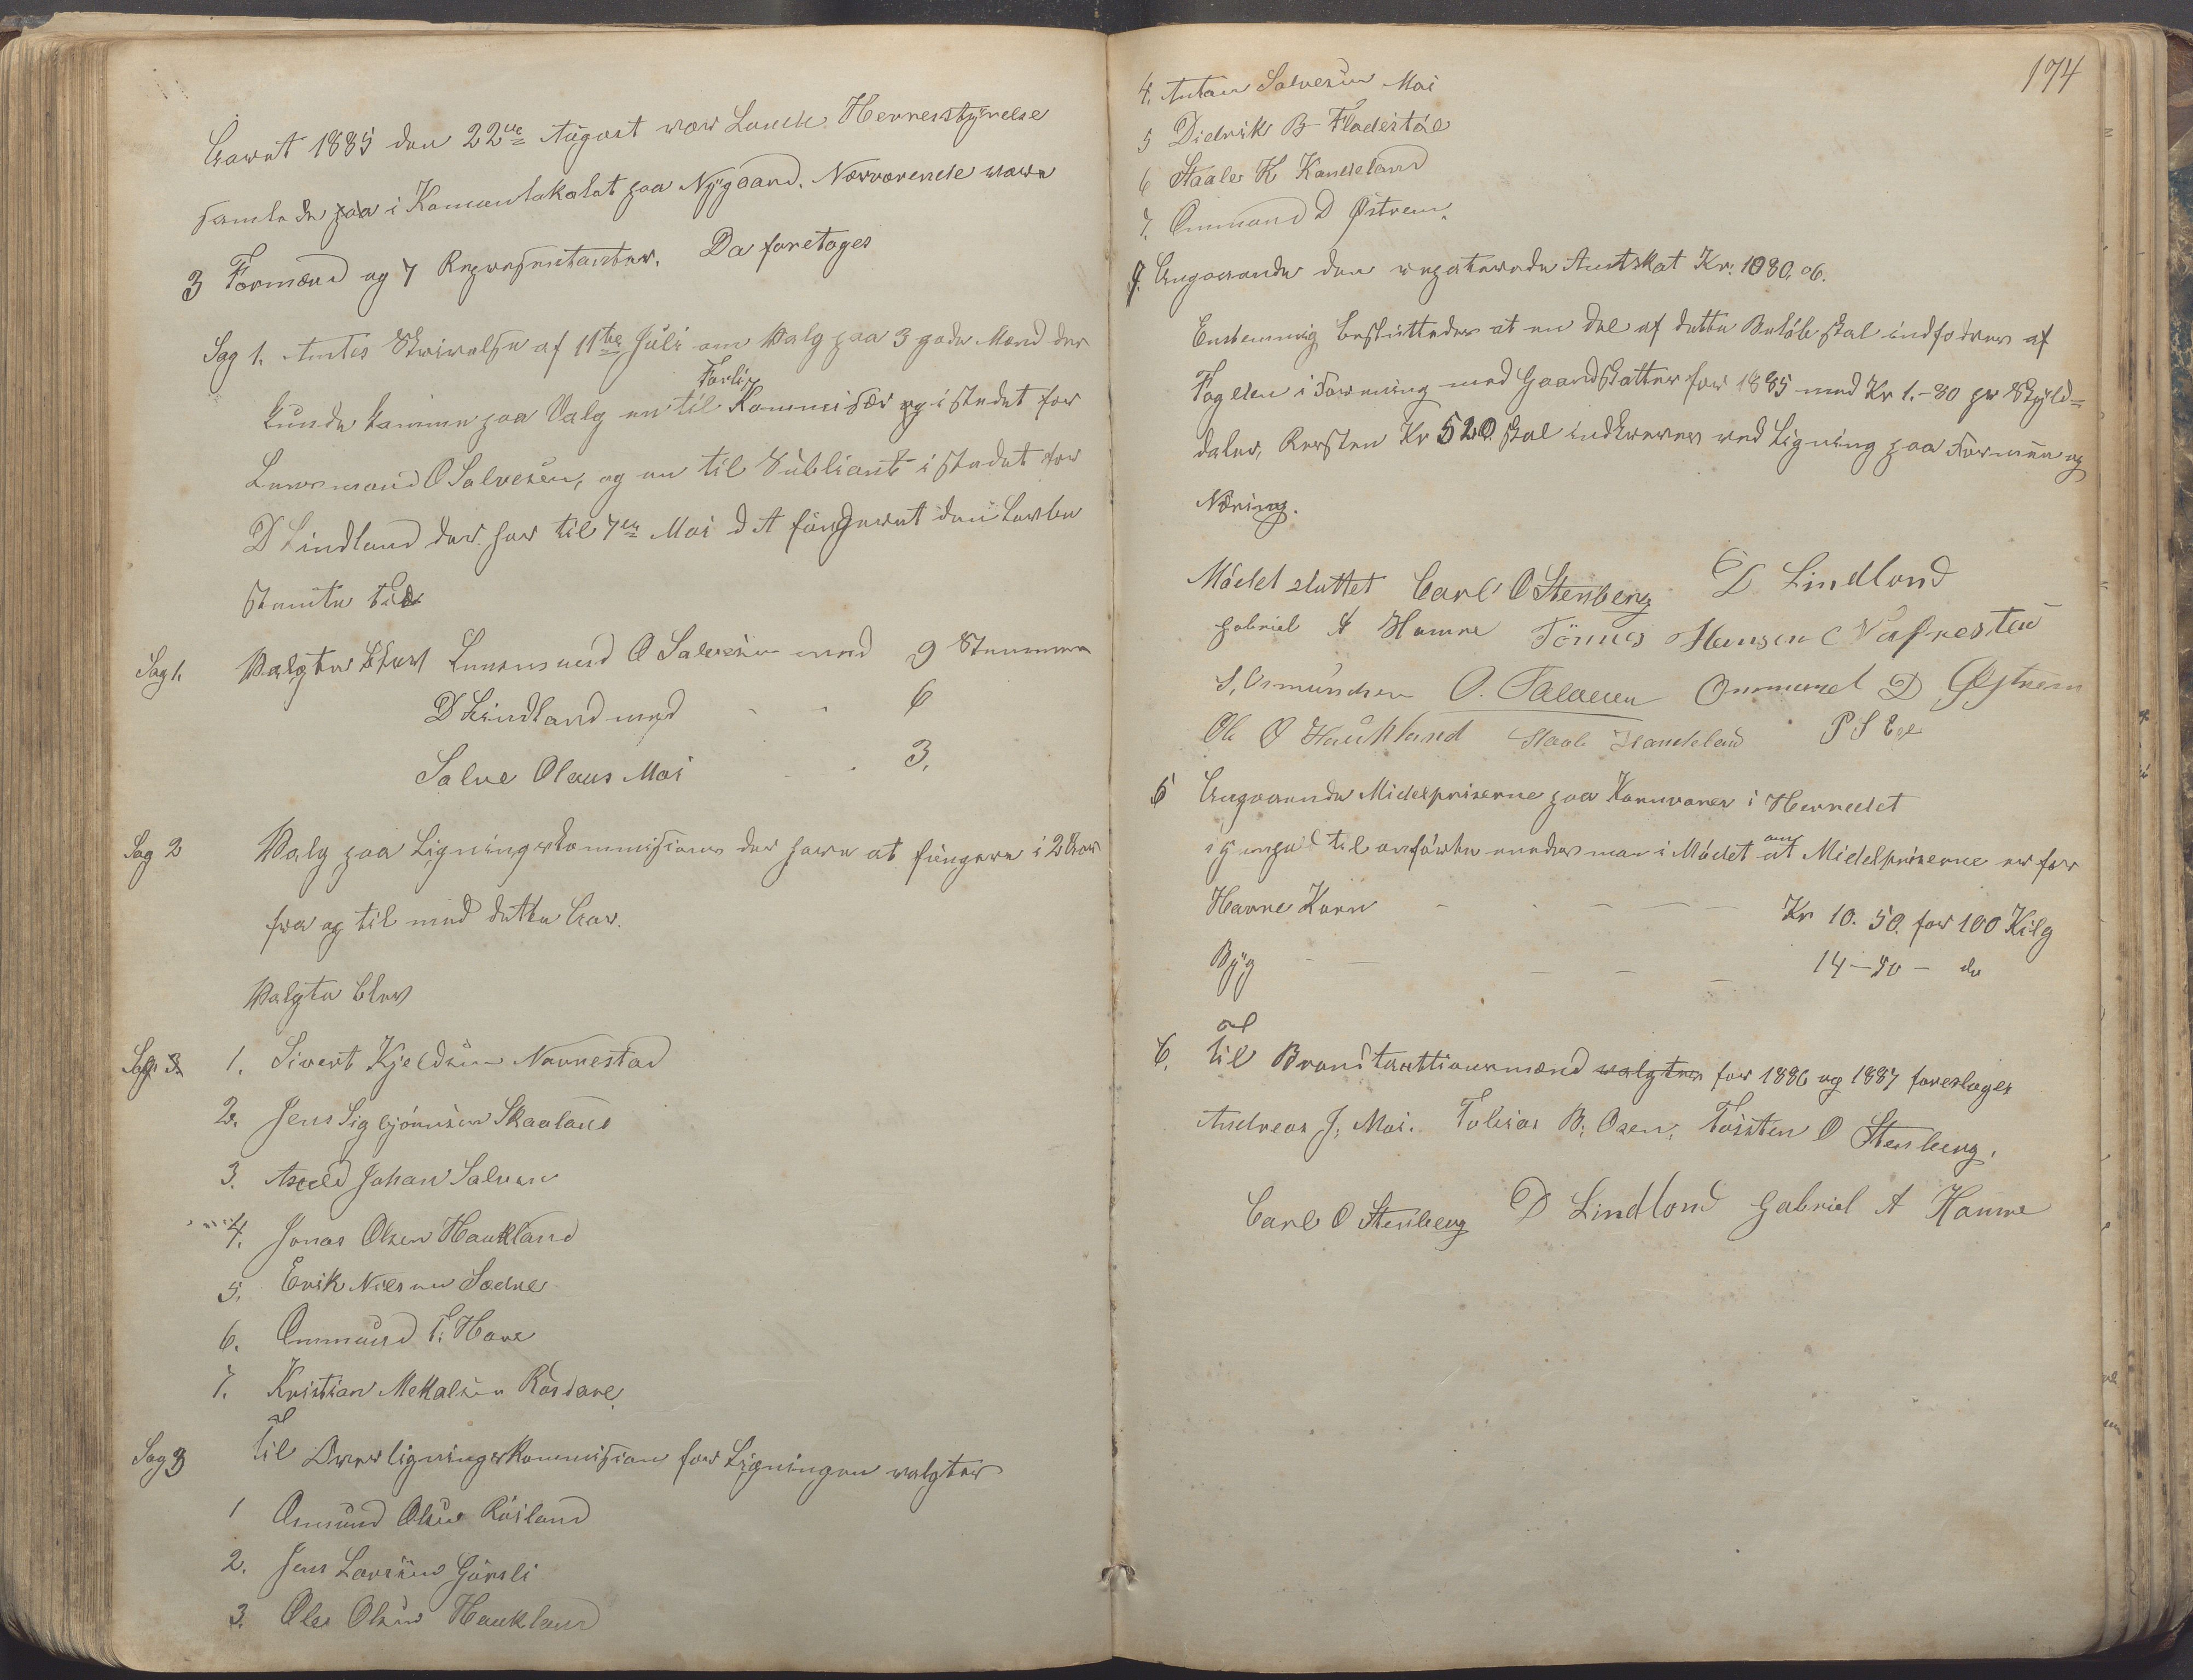 Aaret 1885 den 22de August var Lunde Herrerstyrelse
samlede paa i Komunelokalet paa Nygaard. Nærværende vare
3 Formænd og 7 Representanter. Da foretoges
Sag 1. Amtes Skrivelse af 11te Juli om Valg paa 3 gode Mænd der
kunde komme paa Valg en til Forlig Kommisær og i stedet for
Lensmand O Salvesen, og en til Subliant i stedet for
D Lindland der har til 7de Mai d A fungeret den lovbe
stemte tid
Sag 1. Valgte blev Lensmand O Salvesen med 9 Stemmer
D Lindland med - - 6
Salve Olaus Moi - - 3.
Sag 2 Valg paa Ligningskommission der have at fungere i 2 Aar
fra og til med dette Aar.
Valgte blev
Sag 3. 1. Sivert Kjeldsen Nævnestad
2. Jens Sigbjørnsen Skaaland
3. Aseld Johan Salvesen
4. Jonas Olsen Haukland
5. Erik Nilsen Sædre
6. Ommund T. Hove
7. Kristian Mekalsen Rosdare
Sag 3 Til Overligningskommission for Ligningen valgtes
1 Osmund Olsen Røiland
2. Jens Larsen Gursli
3. Ole Olsen Haukland
174
4. Antan Salvesen Moi
5 Didrik B Flodestøl
6 Staale K Kandeland
7. Ommund D Østrem.
4. Angaaende den repaterede Amtskat Kr: 1080.06.
Enstemmig besluttedes at en del af dette Beløb skal indfodres af
Fogden i Forening med Gaardskatten for 1885 med Kr 1.-30 pr Skyld=
daler, Resten Kr 520 skal indkreves ved Ligning paa Formue og
Næring.
Mødet sluttet Carl O Stensberg D Lindland
Gabriel A Hamre Tönnes Hansen
S, Osmundsen O. Salvesen Ommund D Østrem
Ole O Haukland Staale Kandeland P S Ege
5 Angaaende Midelpriserne paa Kornvarer i Herredet
til anførte enedes man i Mødet om at Midelpriserne er for
Havre Korn - - - - - Kr 10. 50. for 100 Kilg
Byg - - - - - 14-50 - do
6. Til Brandtaxtionsmænd valgtes for 1886 og 1887 foreslages
Andreas J. Moi. Tobias B. Osen, Tosten O Stensberg.
Carl O Stensberg D Lindland Gabriel A Hamre